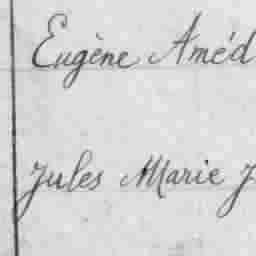 Eugène Améd
Jules Marie J